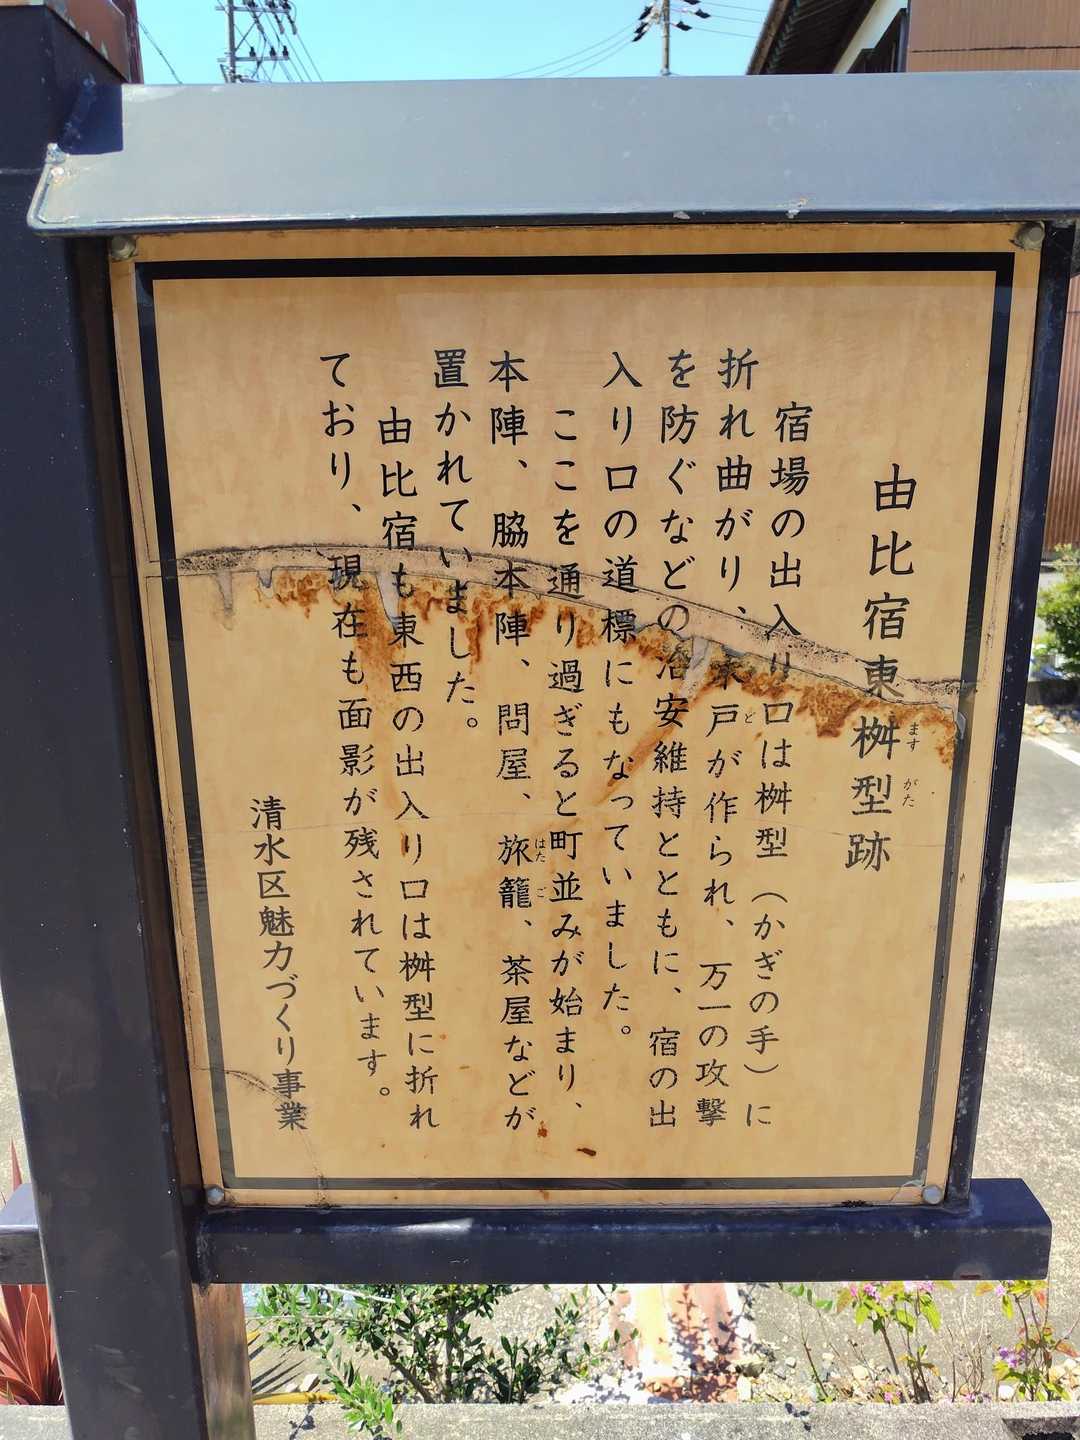 由比宿東桝型跡
ますがた
宿場の出入り口は桝型（かぎの手）に
折れ曲がり、木戸が作られ、万一の攻撃
ど
を防ぐなどの治安維持とともに、宿の出
入り口の道標にもなっていました。
ここを通り過ぎると町並みが始まり、
本陣、脇本陣、問屋、旅籠、茶屋などが
はたご
置かれていました。
由比宿も東西の出入り口は桝型に折れ
ており、現在も面影が残されています。
清水区魅力づくり事業